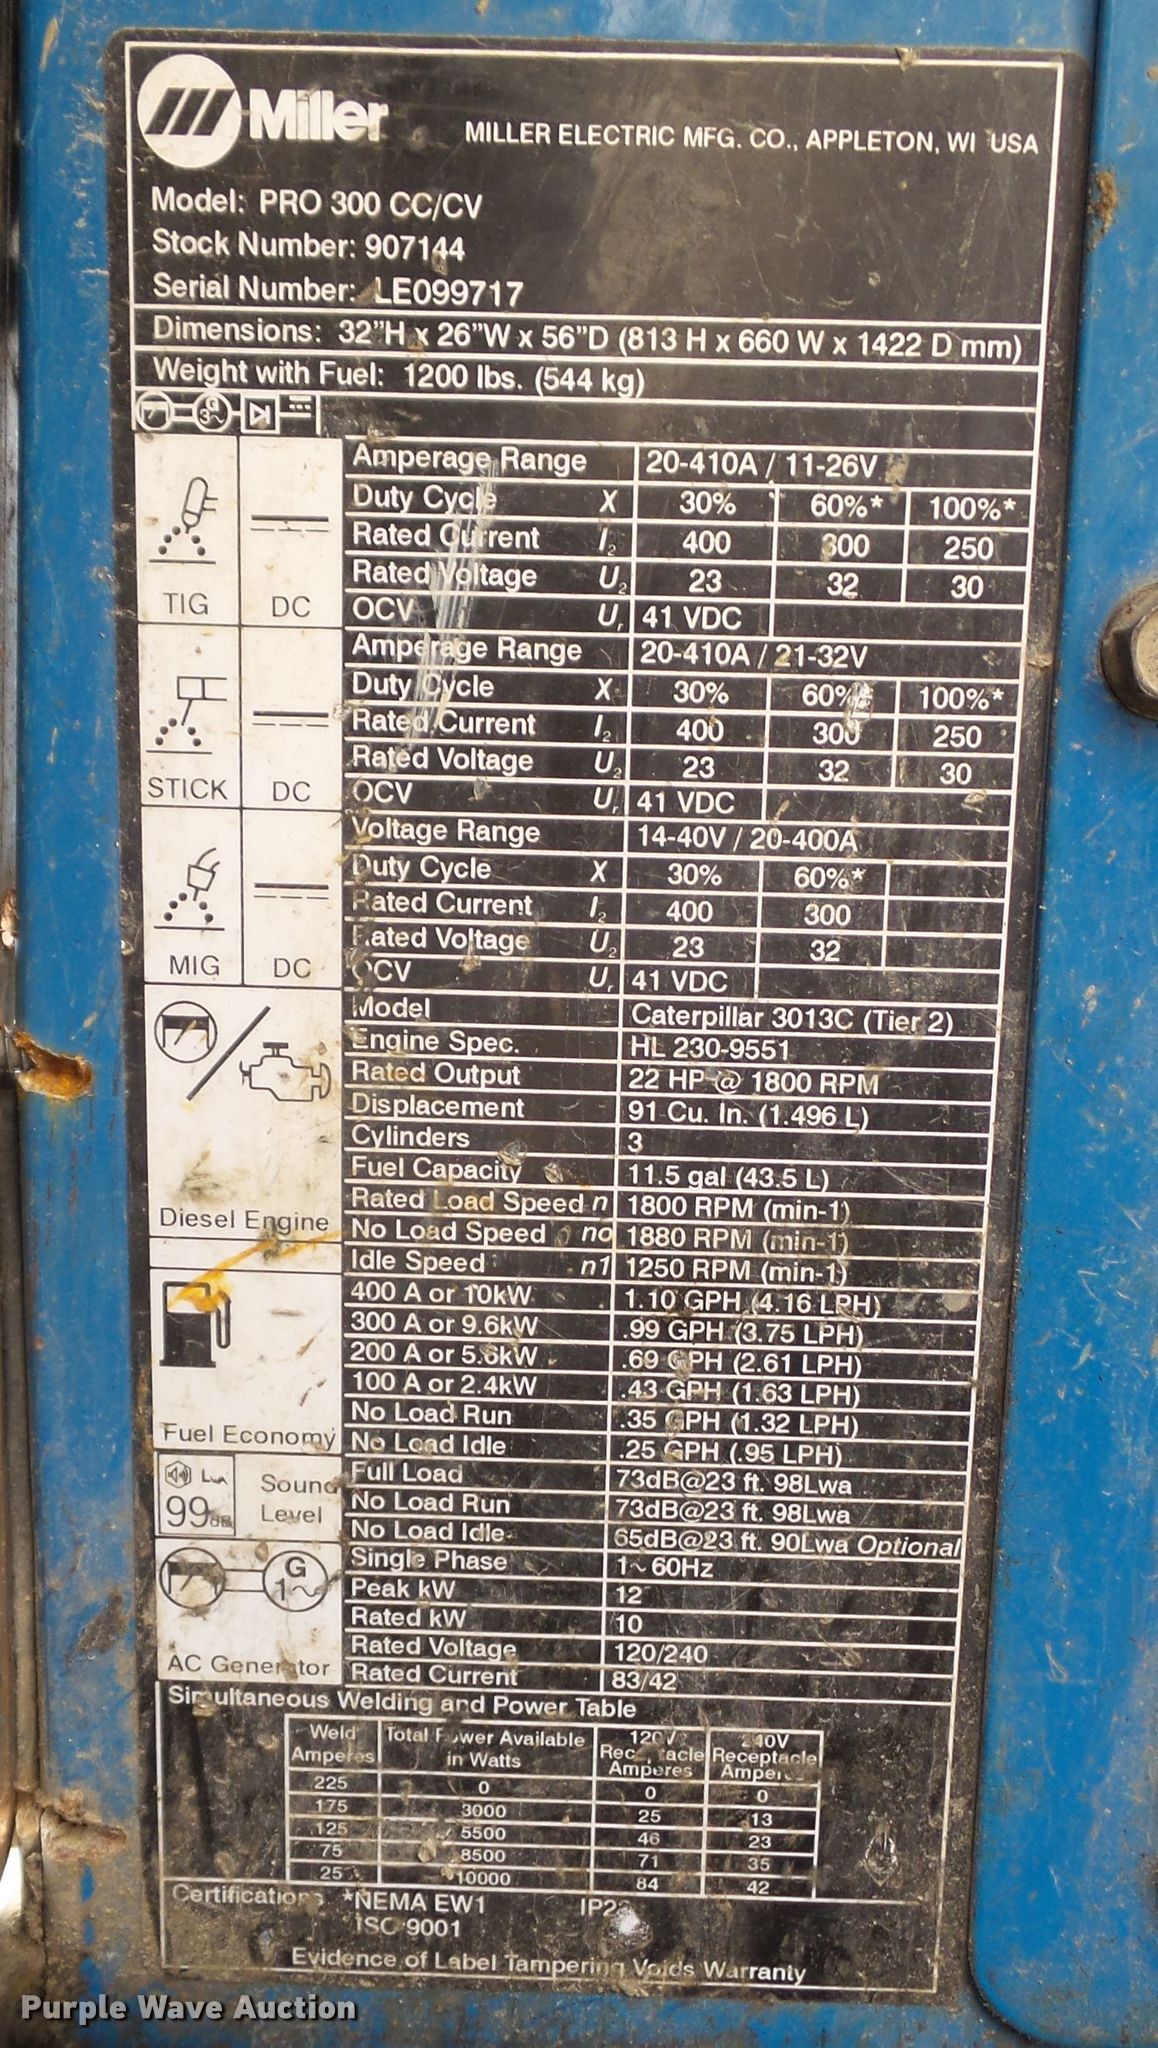 Miller
MILLER ELECTRIC MFG. CO., APPLETON, WI USA
Model: PRO 300 CC/CV
Stock Number: 907144
Serial Number: LE099717
Dimensions: 32"H x 26"W x 56"D (813 H x 660 W x 1422 D mm)
Weight with Fuel: 1200 lbs. (544 kg)
G
3~
TIG DC
Amperage Range 20-410A / 11-26V
Duty Cycle X 30% 60%* 100%*
Rated Current I2 400 300 250
Rated Voltage U2 23 32 30
OCV Ur 41 VDC
STICK DC
Amperage Range 20-410A / 21-32V
Duty Cycle X 30% 60%* 100%*
Rated Current I2 400 300 250
Rated Voltage U2 23 32 30
OCV Ur 41 VDC
MIG DC
Voltage Range 14-40V / 20-400A
Duty Cycle X 30% 60%*
Rated Current I2 400 300
Rated Voltage U2 23 32
OCV Ur 41 VDC
Diesel Engine
Model Caterpillar 3013C (Tier 2)
Engine Spec. HL 230-9551
Rated Output 22 HP @ 1800 RPM
Displacement 91 Cu. In. (1.496 L)
Cylinders 3
Fuel Capacity 11.5 gal (43.5 L)
Rated Load Speed n 1800 RPM (min-1)
No Load Speed no 1880 RPM (min-1)
Idle Speed n1 1250 RPM (min-1)
Fuel Economy
400 A or 10kW 1.10 GPH (4.16 LPH)
300 A or 9.6kW .99 GPH (3.75 LPH)
200 A or 5.6kW .69 GPH (2.61 LPH)
100 A or 2.4kW .43 GPH (1.63 LPH)
No Load Run .35 GPH (1.32 LPH)
No Load Idle .25 GPH (.95 LPH)
LWA
99dB
Sound
Level
Full Load 73dB@23 ft. 98Lwa
No Load Run 73dB@23 ft. 98Lwa
No Load Idle 65dB@23 ft. 90Lwa Optional
G
1~
AC Generator
Single Phase 1~ 60Hz
Peak kW 12
Rated kW 10
Rated Voltage 120/240
Rated Current 83/42
Simultaneous Welding and Power Table
Weld Amperes Total Power Available in Watts 120V Receptacle Amperes 240V Receptacle Amperes
225 0 0 0
175 3000 25 13
125 5500 46 23
75 8500 71 35
25 10000 84 42
Certifications *NEMA EW1
ISO 9001
Evidence of Label Tampering Voids Warranty
Purple Wave Auction